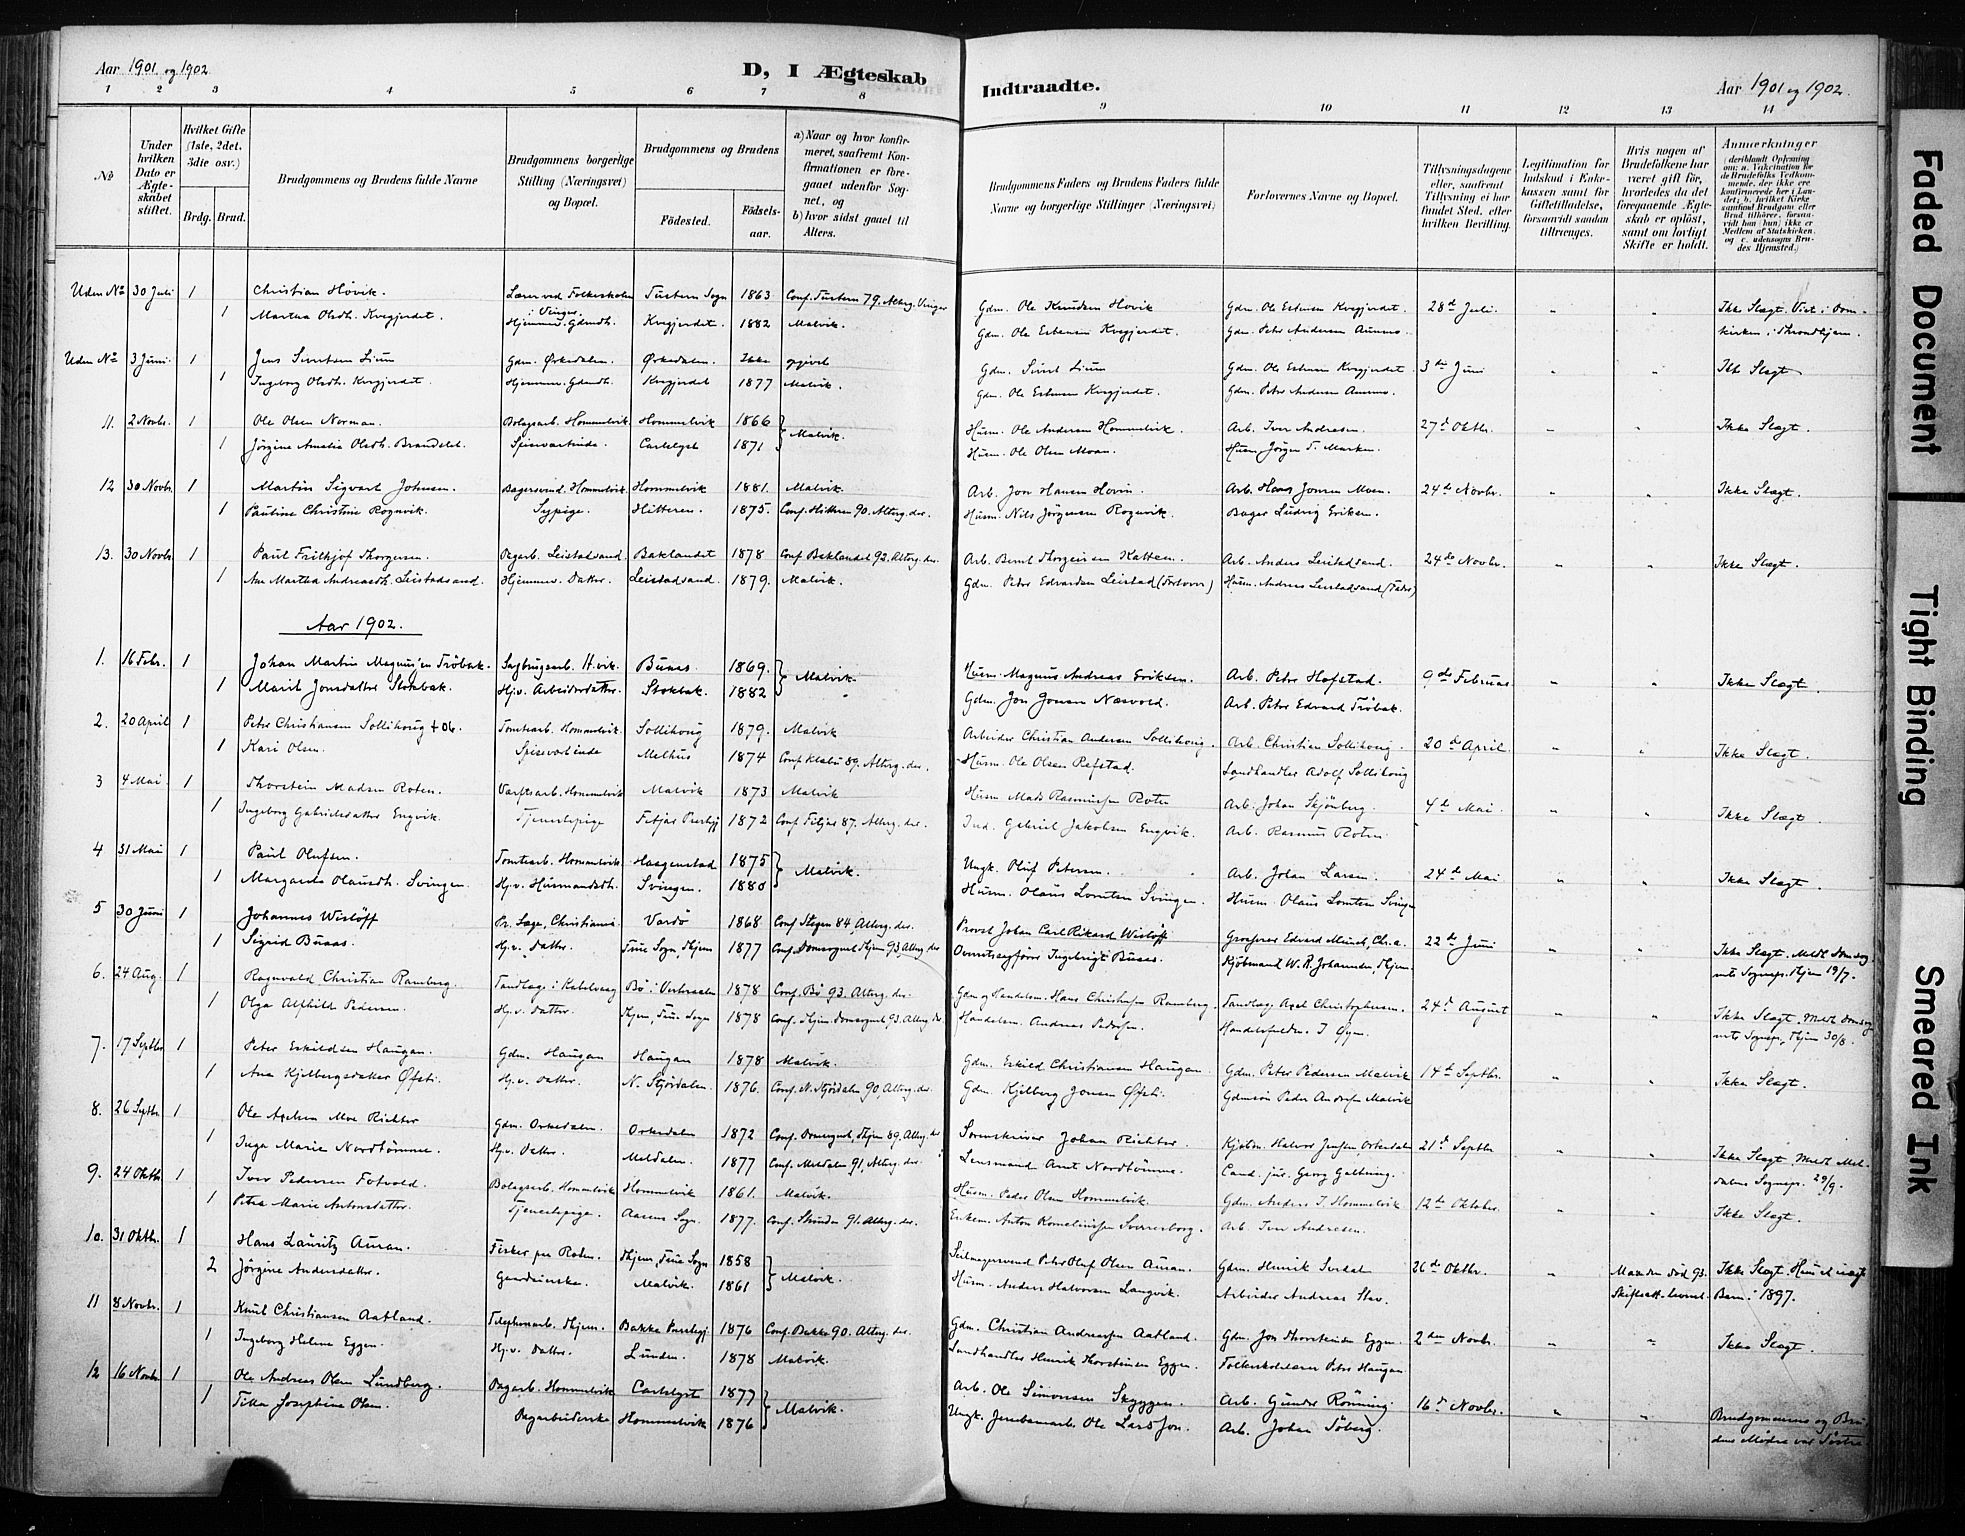 Aar 1901 og 1902
D, I Ægteskab
Indtraadte.
Aar 1901 og 1902.
1 2 3 4 5 6 7 8 9 10 11 12 13 14
No
Under hvilken Dato er Ægteskabet stiftet.
Hvilket Gifte (1ste, 2det, 3die osv.)
Brdg. Brud.
Brudgommens og Brudens fulde Navne
Brudgommens borgerlige Stilling (Næringsvei) og Bopæl.
Brudgommens og Brudens
Fødested.
Fødselsaar.
a) Naar og hvor konfirmeret, saafremt Konfirmationen er foregaaet udenfor Sognet, og
b) hvor sidst gaaet til Alters.
Brudgommens Faders og Brudens Faders fulde Navne og borgerlige Stillinger (Næringsvei)
Forlovernes Navne og Bopæl.
Tillysningsdagene eller, saafremt Tillysning ei har fundet Sted, efter hvilken Bevilling.
Legitimation for Indskud i Enkekassen samt for Giftetilladelse, forsaavidt saadan tiltrænges.
Hvis nogen af Brudefolkene har været gift før, hvorledes da det foregaaende Ægteskab er opløst, samt om lovligt Skifte er holdt.
Anmerkninger
(deriblandt Oplysning om: a. Vakcination for de Brudefolks Vedkommende, der ikke ere konfirmerede her i Landet; b. hvilket Kirkesamfund Brudgom eller Brud tilhører, forsaavidt han (hun) ikke er Medlem af Statskirken, og c. udensogns Brudes Hjemsted.)
Uden No 30 Juli 1 Christian Hövik. Lærer ved Folkeskolen i Vinger. Tustern Sogn 1863 Conf. Tustern 79. Alterg. Vinger Gdm. Ole Knudsen Hovik Gdm. Ole Estensen Kvegjerdet. 28de Juli. " " Ikke Slægt. Viet i Dom-
1 Martha Olsdt. Kvegjerdet. Hjemmev. Gdmdt. Kvegjerdet. 1882 Malvik. Gdm. Ole Estensen Kvegjerdet. Gdm. Peter Andersen Aunmo. kirken i Throndhjem.
Uden No 3 Juni. 1 Jens Sivertsen Lium Gdm. Ørkedalen. Ørkedalen. Ikke opgivet Gdm. Sivert Lium Gdm. Ole Estensen Kvegjerdet 3die Juni " " Ikke Slægt
1 Ingeborg Olsdt. Kvegjerdet. Hjemmev. Gdmdt. Kvegjerdet 1877 Malvik. Gdm. Ole Estensen Kvegjerdet. Gdm. Peter Andersen Aunmo.
11. 2 Novbr. 1 Ole Olsen Norman. Bolagsarb. Hommelvik Hommelvik 1866 Malvik. Husm. Ole Andersen Hommelvik. Arb. Iver Andresen. 27de Oktbr. " " Ikke Slægt.
1 Jörgine Amalia Olsdt. Brandslet. Spisevertinde Carlslyst 1871 Husm. Ole Olsen Moan. Husm. Jörgen T. Marken.
12 30 Novbr. 1 Martin Sigvart Johnsen. Bagersvend. Hommelvik Hommelvik 1881. Malvik. Arb. Jon Hansen Hovin. Arb. Hans Jonsen Moen. 24de Novbr. " " Ikke Slægt.
1 Pauline Christine Rognvik. Sypige. Hitteren. 1875. Conf. Hitteren 90. Alterg. der. Husm. Nils Jörgensen Rognvik. Bager Ludvig Eriksen.
13. 30 Novbr. 1 Paul Frithjof Thorgersen. Pagarb. Leistadsand. Baklandet 1878 Conf. Baklandet 92. Alterg. der. Arb. Bernt Thorgersen Hatten. Arb. Anders Leistadsand. 24de Novbr. " " Ikke Slægt.
1 Ane Martha Andreasdt. Leistadsand. Hjemmev. Datter. Leistadsand. 1879. Malvik. Gdm. Peder Edvardsen Leistad (Forlover) Husm. Andreas Leistadsand (Fader)
Aar 1902.
1. 16 Febr. 1 Johan Martin Magnussen Tröbak. Sagbrugsarb. H.vik. Buaas. 1869. Malvik. Husm. Magnus Andreas Eriksen. Arb. Peter Hofstad. 9de Februar " " Ikke Slægt.
1 Marit Jonsdatter Stokbak. Hjv. Arbeiderdatter. Stokbak. 1882 Gdm. Jon Jonsen Næsvold. Arb. Peter Edvard Tröbak.
2. 20 April 1 Peter Christiansen Sollihoug +06. Tomtearb. Hommelvik. Sollihoug 1879. Malvik Arbeider Christian Andersen Sollihoug. Arb. Christian Sollihoug. 20de April. " " Ikke Slægt.
1 Kari Olsen. Spisevertinde Melhus 1874 Conf. Klæbu 89. Alterg. der. Husm. Ole Olsen Refstad. Landhandler Adolf Sollihoug
3 4 Mai. 1 Thorstein Madsen Roten. Værftsarb. Hommelvik Malvik 1873 Malvik Husm. Mads Rasmussen Roten Arb. Johan Skjönberg. 4de Mai " " Ikke Slægt.
1 Ingeborg Gabrielsdatter Engvik. Tjenestepige Fitjar Prestgj. 1872 Conf. Fitjar 87. Alterg. der. Ind. Gabriel Jakobsen Engvik. Arb. Rasmus Roten.
4 31 Mai 1 Paul Olufsen. Tomtearb. Hommelvik Haagenstad 1875 Malvik. Ungk. Oluf Petersen. Arb. Johan Larsen. 24de Mai " " Ikke Slægt.
1 Margarda Olausdt. Svingen. Hj.v. Husmandsdt. Svingen. 1880 Husm. Olaus Lorntsen Svingen. Husm. Olaus Lorntsen Svingen
5 30 Juni 1 Johannes Wislöff Pr. Læge, Christiania Vardö 1868 Conf. Stegen 84, Alterg. der. Provst Johan Carl Rikard Wislöff Grosserer Edvard Münch, Chr.a. 22de Juni " " Ikke Slægt. Meldt Domsog-
1 Sigrid Buaas. Hj.v. Datter. Frue Sogn, Thjem 1877 Conf. Domsognet Thjem 93, Alterg. der Overretssagförer Ingebrigt Buaas. Kjöbmand W. R. Johannesen, Thjem. nets Sognepr. Thjem 19/7.
6. 24 Aug. 1 Ragnvald Christian Ramberg. Tandlæge i Kabelvaag Bö i Vesteraalen 1878 Conf. Bö 93. Alterg. der. Gdm og Handelsm. Hans Christofer Ramberg. Tandlæg. Axel Christophersen. 24de August " " Ikke Slægt. Meldt Domsog
1 Olga Alfhild Pedersen. Hj.v. Datter. Thjem, Frue Sogn 1878 Conf. Thjem Domsognet 93. Alterg. der Handelsm. Andreas Pedersen. Handelsfuldm. I. Gym. nets Sognepr, Thjem 30/8.
7. 17 Septbr 1 Peter Eskildsen Haugan. Gdm. Haugan Haugan 1878 Malvik. Gdm. Eskild Christiansen Haugan. Gdm. Peter Pedersen Malvik 14de Septbr. " " Ikke Slægt.
1 Ane Kjelbergsdatter Øfsti. Hj.v. Datter. N. Stjördalen. 1876. Conf. N. Stjördalen 90, Alterg. der. Gdm. Kjelberg Jonsen Øfsti. Gdmsön Peder Andersen Malvik
8. 26 Septbr. 1 Ole Axelsen Moe Richter Gdm. Orkedalen. Orkedalen 1872 Conf. Domsognet, Thjem 89. Alterg. der Sorenskriver Johan Richter. Kjöbm. Halvor Jenssen Orkedalen 21de Septbr " " Ikke Slægt. Meldt Mel-
1 Inga Marie Nordtömme. Hj.v. Datter. Meldalen. 1877 Conf. Meldalen 91, Alterg. der. Lensmand Arnt Nordtömme. Cand. jur. Georg Galtung. dalens Sognepr. 29/9.
9. 24 Oktbr. 1 Iver Pedersen Fotvold. Bolagsarb. Hommelvik Hommelvik 1861. Malvik. Husm. Peder Olsen Hommelvik. Gdm. Anders I. Hommelvik 12te Oktober. " " Ikke Slægt.
1 Petra Marie Antonsdatter. Tjenestepige. Aasens Sogn. 1877. Conf. Strinden 91. Alterg. der. Enkem. Anton Kornelinssen Sverresborg. Arb. Iver Andresen.
10. 31 Oktbr. 1 Hans Lauritz Auran. Fisker paa Roten. Thjem, Frue Sogn 1858 Malvik. Seilmagersvend Peter Oluf Olsen Auran. Gdm. Henrik Svedal. 26de Oktbr. " Manden död 93. Ikke Slægt. Hun et uægte
2 Jörgine Andersdatter. Gaardmenske. Malvik. 1861 Husm. Anders Halvorsen Langvik. Arbeider Andreas Stav. Skifteatt. levret. Barn i 1897.
11 8 Novbr. 1 Knut Christiansen Aatland. Telephonarb. Thjem. Bakke Prestegj. 1876 Conf. Bakke 90. Alterg. der. Gdm. Christian Andreassen Aatland. Gdm. Jon Thorsteinsen Eggen. 2den Novbr. " " Ikke Slægt.
1 Ingeborg Helene Eggen. Hj.v. Datter. Lunden. 1878 Malvik. Landhandler Henrik Thorsteinsen Eggen. Folkeskolelærer Peter Haugan
12 16 Novbr. 1 Ole Andreas Olsen Lundberg. Pagarb. Hommelvik Carlslyst 1877 Malvik. Arb. Ole Simonsen Skyggen. Arb. Gunder Rönning. 16de Novbr. " " Brudgommens og Bru-
1 Tilla Josephine Olsen. Pagarbeiderske Hommelvik 1876 Ungk. Jernbanearb. Ole Larsson. Arb. Johan Söberg. dens Mödre var Söstre.
Faded Document
Tight Binding
Smeared Ink